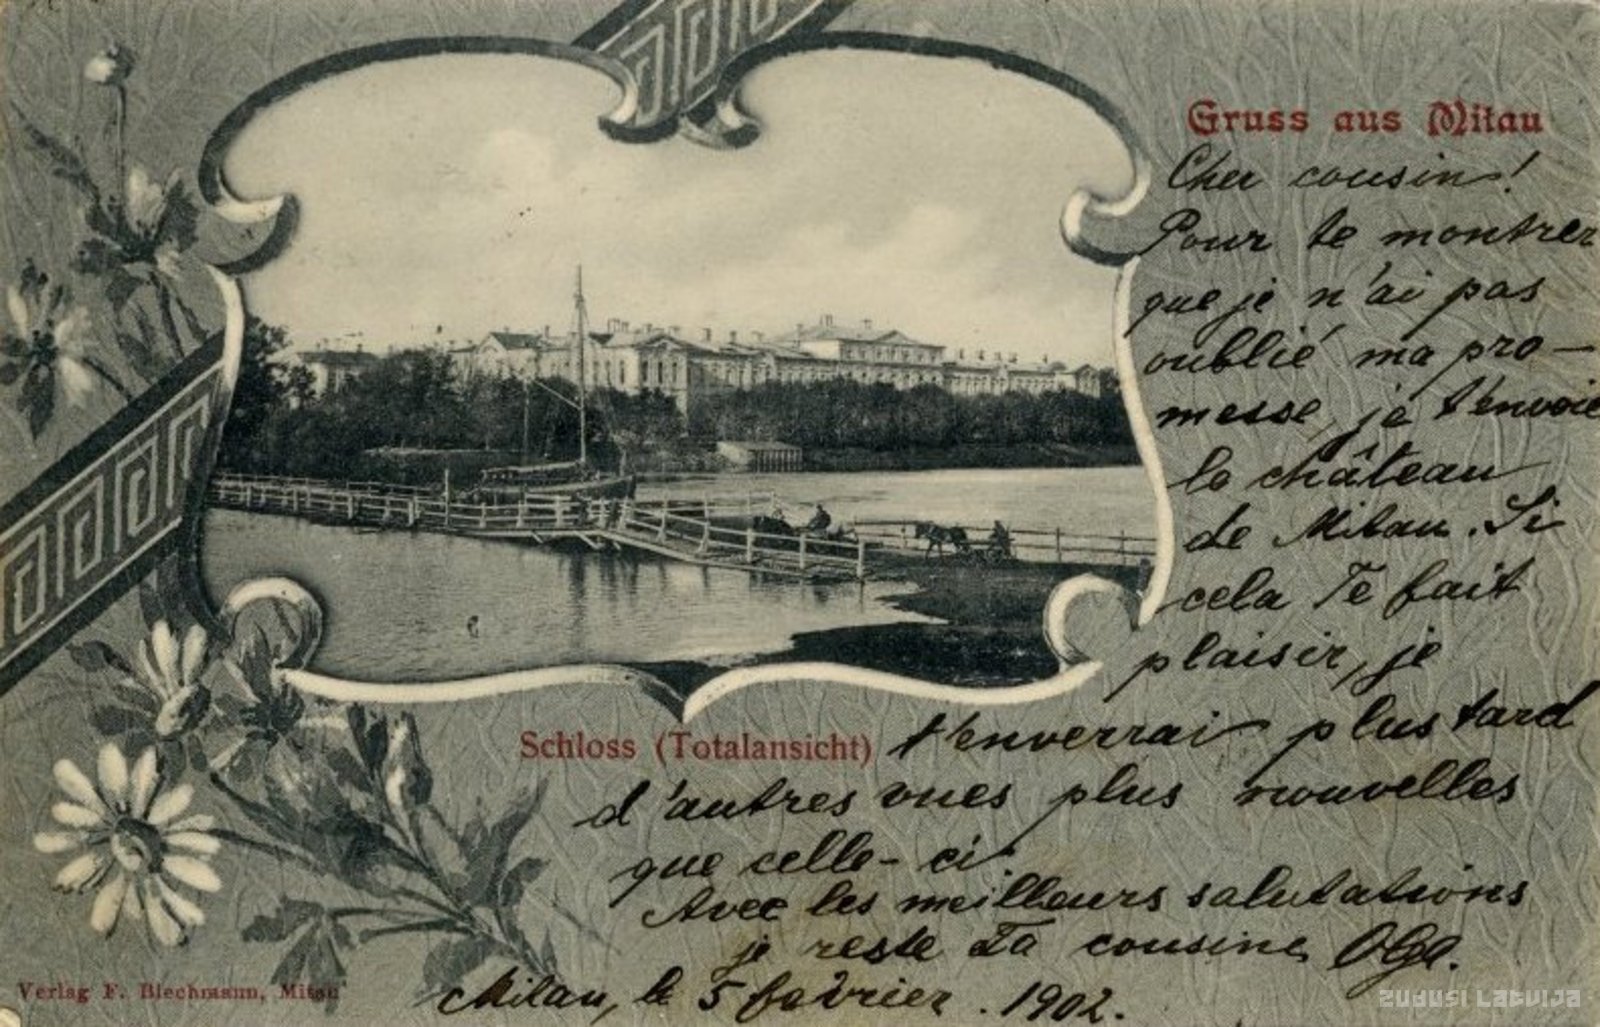 Gruss aus Mitau
Cher cousin!
Pour te montrer
que je n'ai pas
oublié ma pro-
messe, je t'envoie
le château
de Mitau. Si
cela Te fait
plaisir, je
Schloss (Totalansicht) t'enverrai plus tard
d'autres vues plus nouvelles
que celle-ci.
Avec les meilleurs salutations
je reste Ta cousine Olga.
Mitau, le 5 février. 1902.
Verlag F. Blechmann, Mitau
ZUDUSI LATVIJA